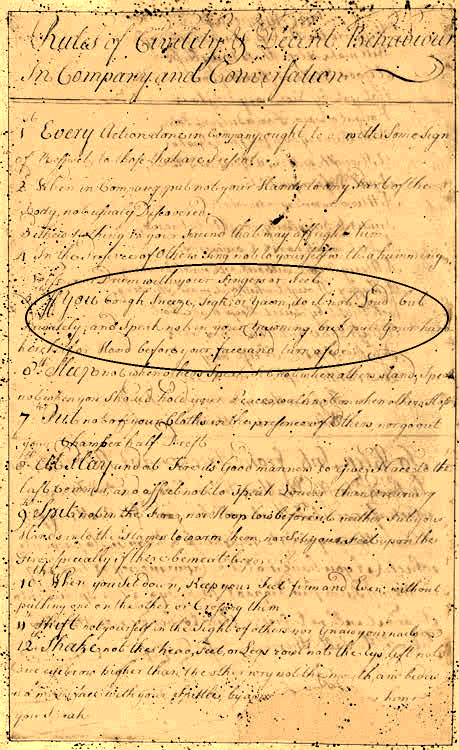 Rules of Civility & Decent Behaviour
In Company and Conversation
1st Every Action done in Company, ought to be with Some Sign
of Respect, to those that are Present.
2d When in Company, put not your Hands to any Part of the
Body, not usualy Discovered.
3d Shew Nothing to your Freind that may affright him.
4 In the Presence of Others Sing not to yourself with a humming
Drum with your Fingers or Feet
5th If You Cough, Sneeze, Sigh, or Yawn, do it not Loud but
Privately; and Speak not in your Yawning, but put Your hand
Hand before your face and turn aside
6th Sleep not when others Speak, Sit not when others stand, Speak
not when you Should hold your Peace, walk not on when others Stop
7th Put not off your Cloths in the presence of Others, nor go out
your Chamber half Drest
8th At Play and at Fire its Good manners to Give Place to the
last Commer, and affect not to Speak Louder than ordinary
9th Spit not in the Fire, nor Stoop low before it neither Put your
Hands into the Flames to warm them, nor Set your Feet upon the
Fire especially if there be meat before it
10th When you Sit down, Keep your Feet firm and Even, without
putting one on the other or Crossing them
11th Shift not yourself in the Sight of others nor Gnaw your nails
12th Shake not the head, Feet, or Legs rowl not the Eys lift not
one eyebrow higher than the other wry not the mouth, and bedew
no mans face with your Spittle, by
you Speak